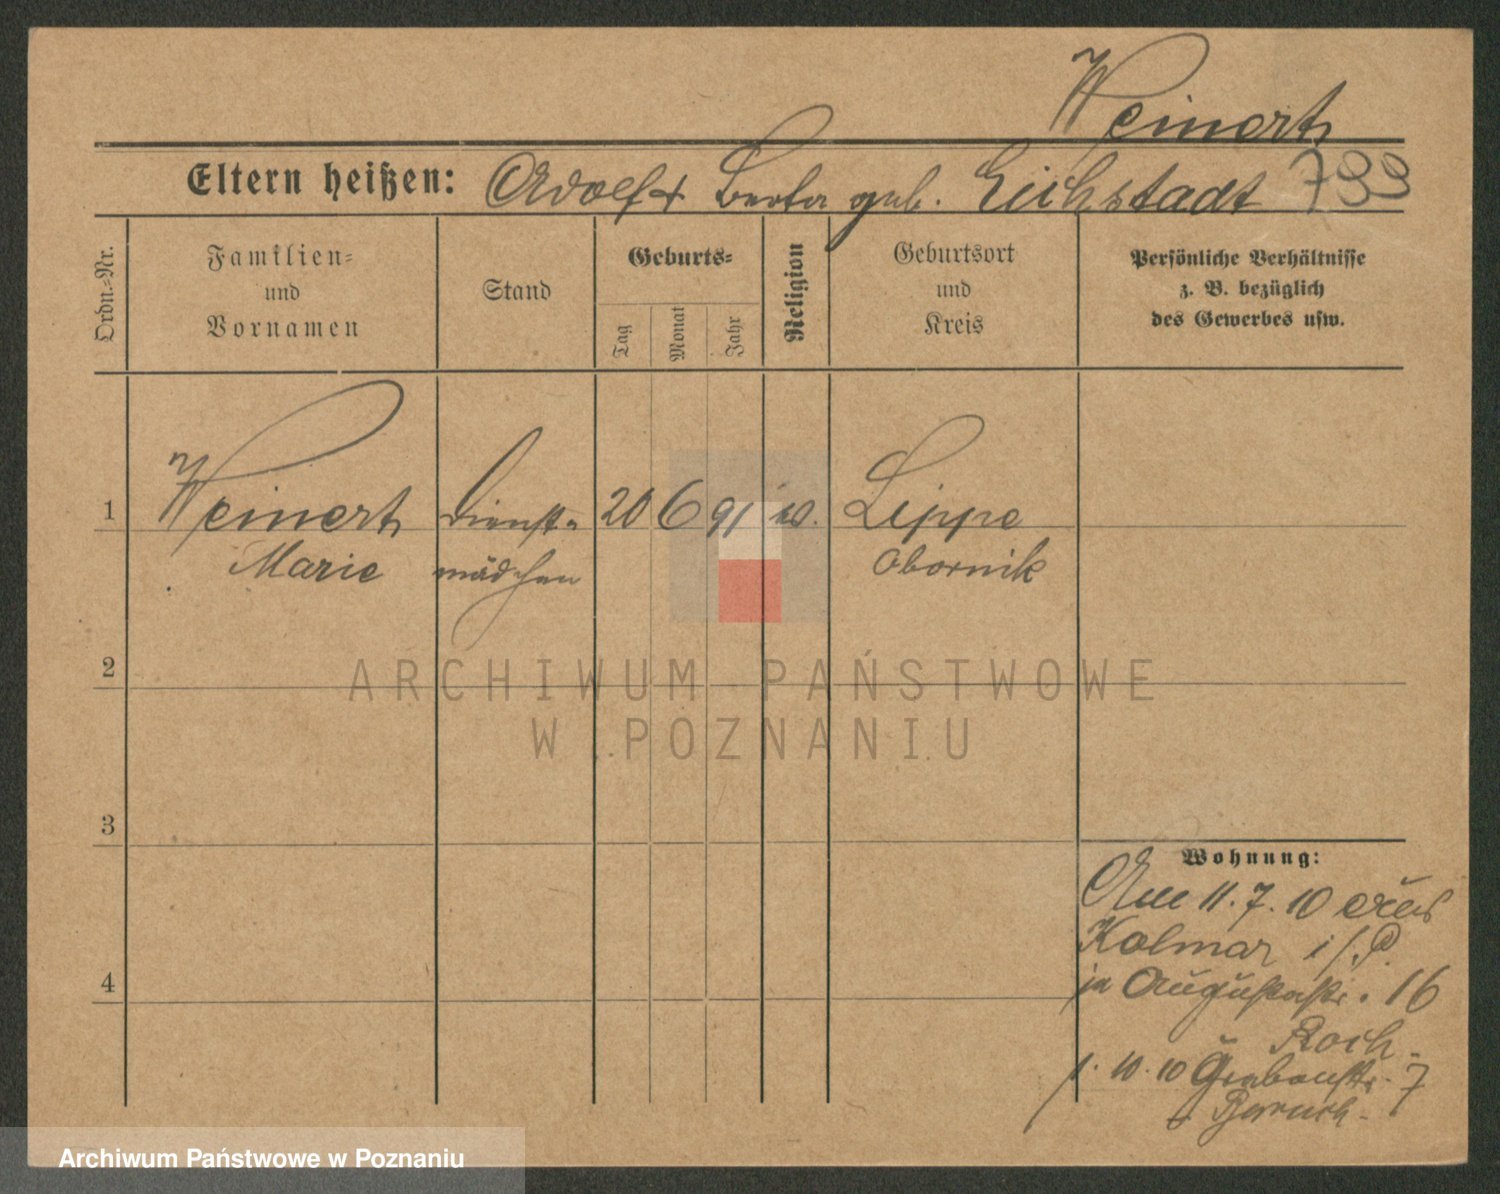 Weinert
Eltern heißen: Adolf + Berta geb. Eichstadt 799
Ordn.-Nr.
Familien-
und
Vornamen
Stand
Geburts-
Tag
Monat
Jahr
Religion
Geburtsort
und
Kreis
Persönliche Verhältnisse
z. B. bezüglich
des Gewerbes usw.
1 Weinert Dienst- 20 6 91 Lippe
Marie mädchen Obornik
2
ARCHIWUM PAŃSTWOWE
W POZNANIU
3
Wohnung:
Am 11.7.10 aus
Kolmar i/P.
in Augustastr. 16
4
Koch
1.10.10 Grabenstr. 7
b Baruch
Archiwum Państwowe w Poznaniu